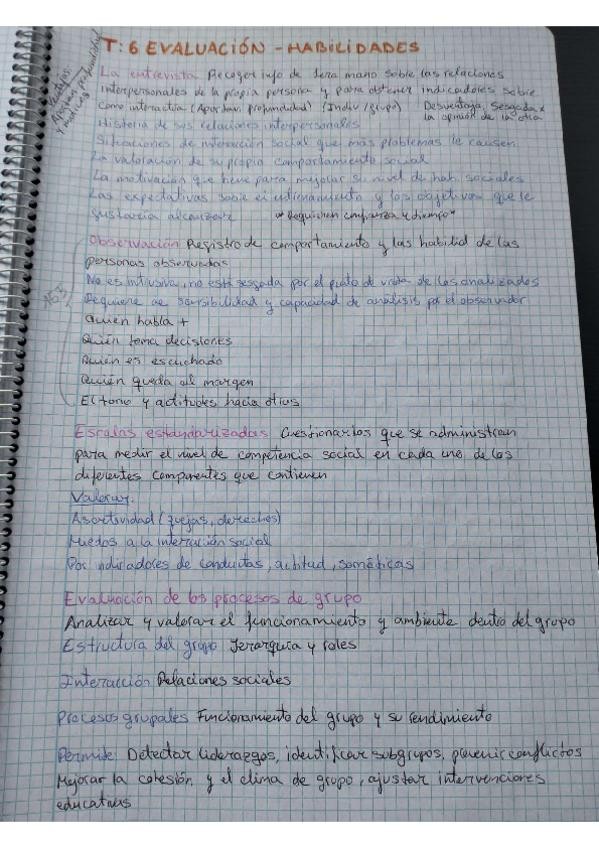 T: 6 EVALUACIÓN - HABILIDADES
Ventajas
Aportan profundidad
y matices
La entrevista Recoger info de 1era mano sobre las relaciones
interpersonales de la propia persona y para obtener indicadores sobre
como interactua (Aportan profundidad) (Indiv/grupo) Desventaja, sesgada x
la opinión de la otra
Historia de sus relaciones interpersonales
Situaciones de interacción social que más problemas le causen
La valoración de su propio comportamiento social
La motivación que tiene para mejorar su nivel de hab. sociales
Las expectativas sobre el entrenamiento y los objetivos que le
gustaría alcanzar "Requieren confianza y tiempo"
Observación Registro de comportamiento y las habilid de las
personas observadas
No es intrusiva, no está sesgada por el punto de vista de los analizados
Requiere de sensibilidad y capacidad de análisis por el observador
Quién habla +
Quién toma decisiones
Quién es escuchado
Quién queda al margen
El tono y actitudes hacia otros
Escalas estandarizadas Cuestionarios que se administran
para medir el nivel de competencia social en cada uno de los
diferentes componentes que contienen
Valorar:
Asertividad (quejas, derechos)
Miedos a la interacción social
Por indicadores de conductas, actitud, somáticas
Evaluación de los procesos de grupo
Analizar y valorar el funcionamiento y ambiente dentro del grupo
Estructura del grupo Jerarquía y roles
Interacción Relaciones sociales
Procesos grupales Funcionamiento del grupo y su rendimiento
Permite: Detectar liderazgos, identificar subgrupos, prevenir conflictos
Mejorar la cohesión y el clima de grupo, ajustar intervenciones
educativas